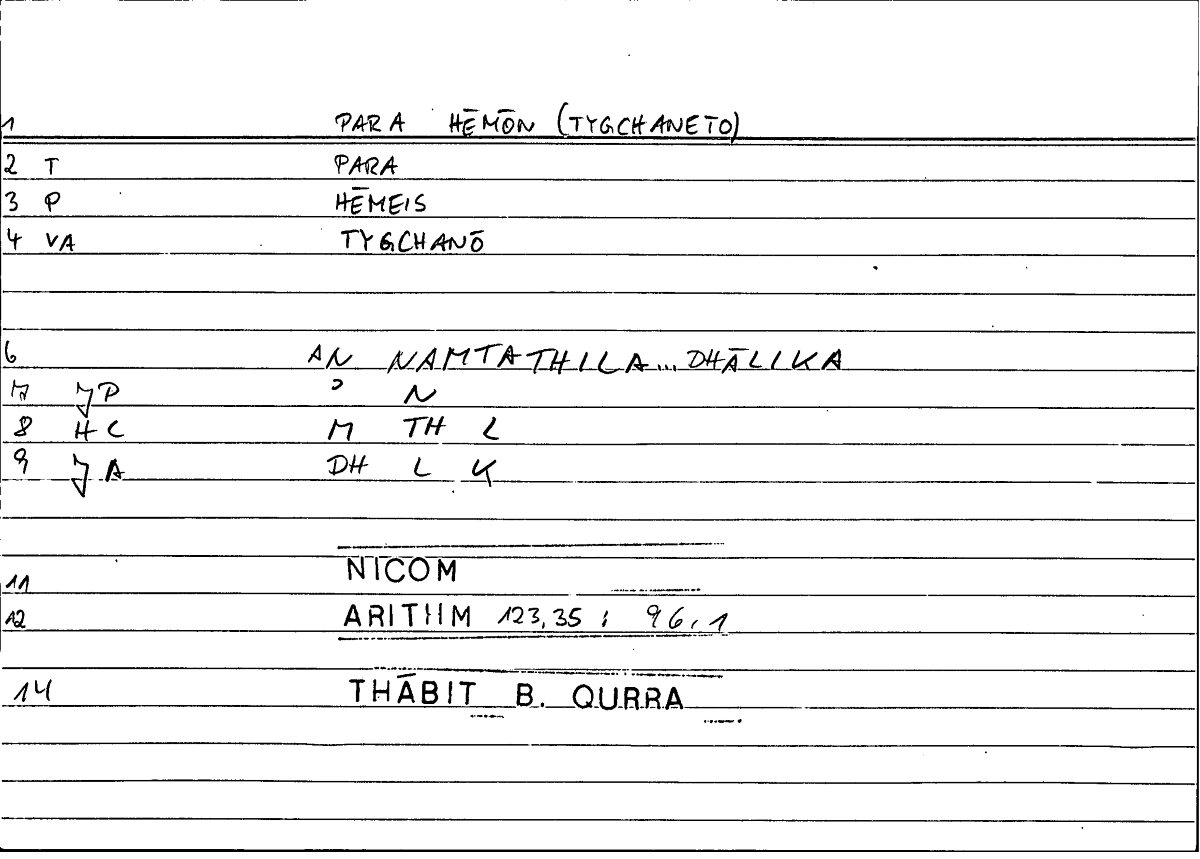 1 PARA HĒMŌN (TYGCHANETO)
2 T PARA
3 P HĒMEIS
4 VA TYGCHANŌ
6 AN NAMTATHILA... DHĀLIKA
7 JP ʾ N
8 HC M TH L
9 JA DH L K
11 NICOM
12 ARITHM 123,35 ; 96,1
14 THĀBIT B. QURRA